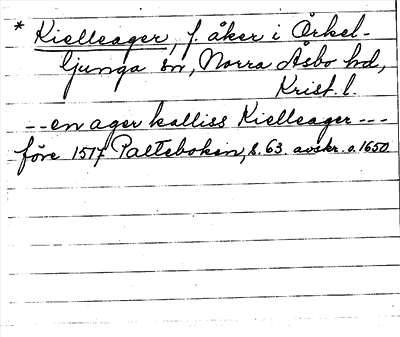 * Kielleager, f. åker i Örkel-
ljunga sn, Norra Åsbo hd,
Krist. l.
--- en ager kalliss Kielleager ---
före 1517 Paltebokan, s. 63. avskr. o. 1650